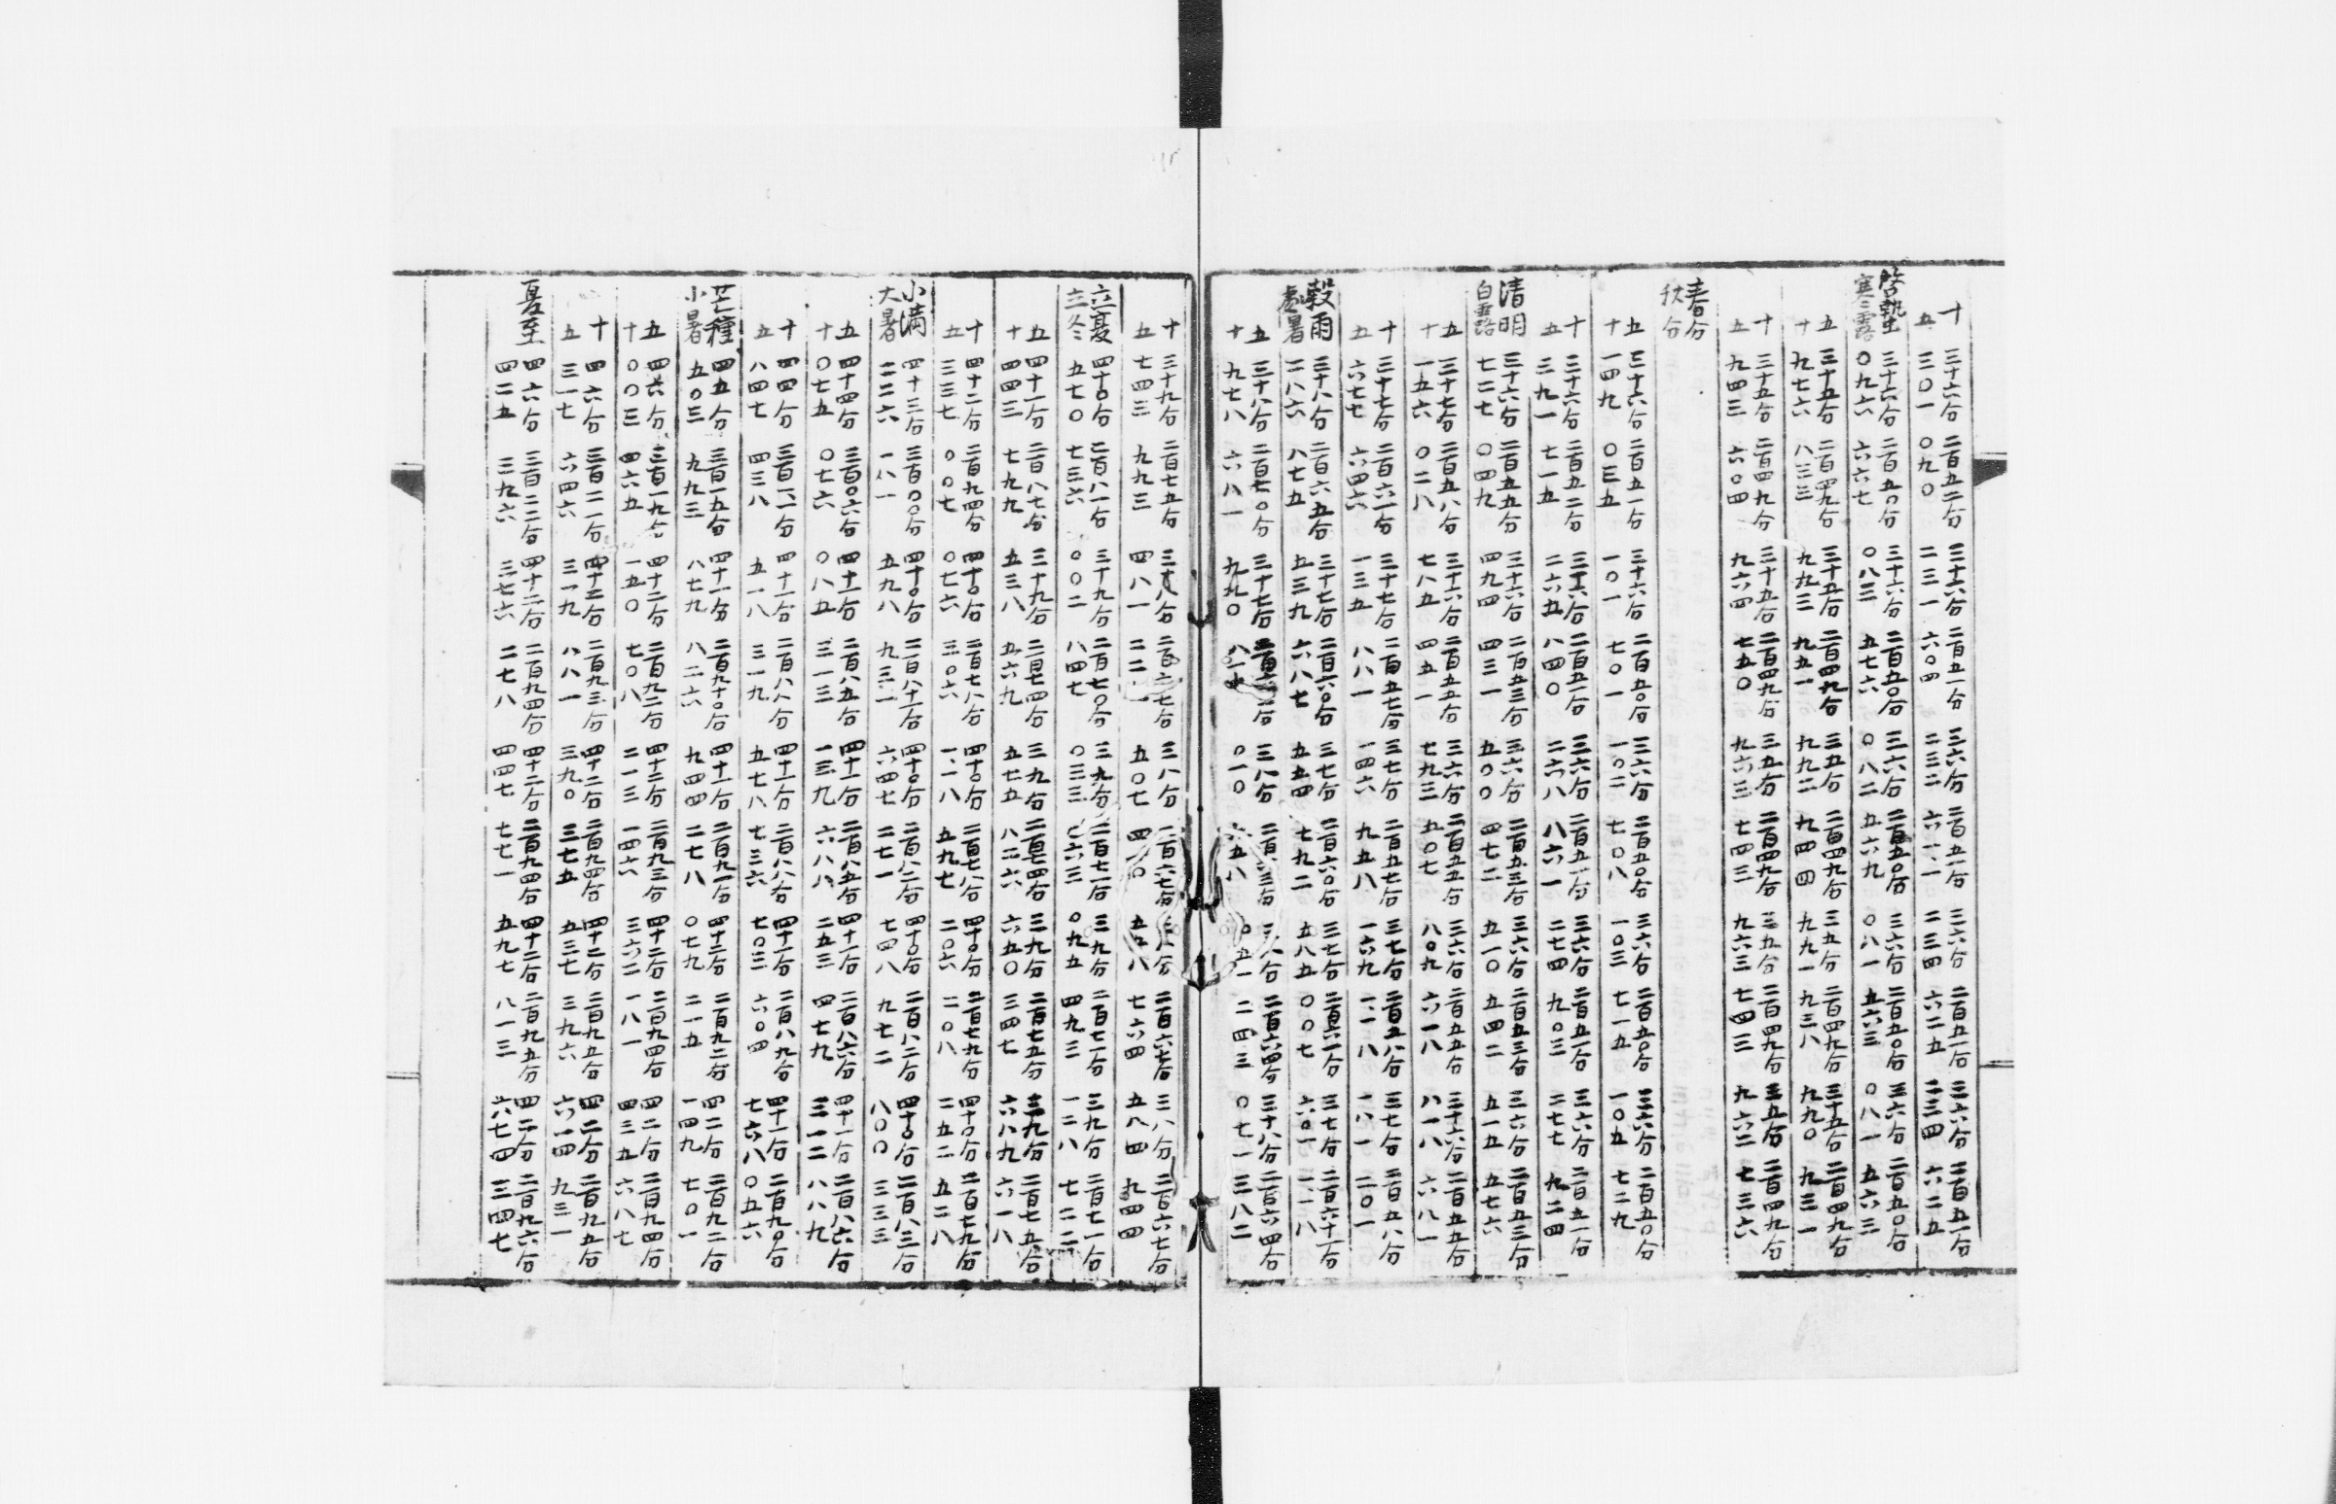 十 三十六分 二百五二分 三十六分 二百五一分 三六分 二百五一分 三六分 二百五一分 三六分 二百五一分
五 三〇一 〇九〇 二三一 六〇四 二三二 六一一 二三四 六二五 二三四 六二五
啓蟄 三十六分 二百五〇分 三十六分 二百五〇分 三六分 二百五〇分 三六分 二百五〇分 三六分 二百五〇分
寒露 〇九六 六六七 〇八三 五七六 〇八二 五六九 〇八一 五六三 〇八一 五六三
五 三十五分 二百四九分 三十五分 二百四九分 三五分 二百四九分 三五分 二百四九分 三十五分 二百四九分
十 九七六 八三三 九九三 九五一 九九二 九四四 九九一 九三八 九九〇 九三一
十 三十五分 二百四九分 三十五分 二百四九分 三五分 二百四九分 三五分 二百四九分 三五分 二百四九分
五 九四三 六〇四 九六四 七五〇 九六三 七四三 九六三 七四三 九六二 七三六
春分
秋分
五 三十六分 二百五一分 三十六分 二百五〇分 三六分 二百五〇分 三六分 二百五〇分 三六分 二百五〇分
十 一四九 〇三五 一〇一 七〇一 一〇二 七〇八 一〇三 七一五 一〇五 七二九
十 三十六分 二百五二分 三十六分 二百五一分 三六分 二百五一分 三六分 二百五一分 三六分 二百五一分
五 三九一 七一五 二六五 八四〇 二六八 八六一 二七四 九〇三 二七七 九二四
清明 三十六分 二百五五分 三十六分 二百五三分 三六分 二百五三分 三六分 二百五三分 三六分 二百五三分
白露 七二七 〇四九 四九四 四三一 五〇〇 四七二 五一〇 五四二 五一五 五七六
五 三十七分 二百五八分 三十六分 二百五五分 三六分 二百五五分 三六分 二百五五分 三十六分 二百五五分
十 一五六 〇二八 七八五 四五一 七九三 五〇七 八〇九 六一八 八一八 六八一
十 三十七分 二百六一分 三十七分 二百五七分 三七分 二百五七分 三七分 二百五八分 三七分 二百五八分
五 六七七 六四六 一三五 八八一 一四六 九五八 一六九 一一八 一八一 二〇一
穀雨 三十八分 二百六五分 三十七分 二百六〇分 三七分 二百六〇分 三七分 二百六一分 三七分 二百六十一分
處暑 二八六 八七五 五三九 六八七 五五四 七九二 五八五 〇〇七 六〇一 一一八
五 三十八分 二百七〇分 三十七分 三八分 三八分 二百六四分 三十八分 二百六四分
十 九七八 六八一 九九〇 〇一〇 〇五一 二四三 〇七一 三八二
十 三十九分 二百七五分 三十八分 二百六七分 三八分 二百六七分 三八分 二百六七分 三八分 二百六七分
五 七四三 九九三 四八一 五〇七 七六四 五八四 九四四
立夏 四十〇分 二百八一分 三十九分 二百七〇分 三九分 二百七一分 三九分 二百七一分 三九分 二百七一分
立冬 五七〇 七三六 〇〇二 八四七 〇三三 〇九五 四九三 一二八 七二二
五 四十一分 二百八七分 三十九分 二百七四分 三九分 二百七四分 三九分 二百七五分 三九分 二百七五分
十 四四三 七九九 五三八 五六九 五七五 八二六 六五〇 三四七 六八九 六一八
十 四十二分 二百九四分 四十〇分 二百七八分 四十〇分 二百七八分 四十〇分 二百七九分 四十〇分 二百七九分
五 三三七 〇〇七 〇七六 三〇六 一一八 五九七 二〇六 二〇八 二五二 五二八
小満 四十三分 三百〇〇分 四十〇分 二百八十一分 四十〇分 二百八二分 四十〇分 二百八二分 四十〇分 二百八三分
大暑 二二六 一八一 五九八 九三一 六四七 二七一 七四八 九七二 八〇〇 三三三
五 四十四分 三百〇六分 四十一分 二百八五分 四十一分 二百八五分 四十一分 二百八六分 四十一分 二百八六分
十 〇七五 〇七六 〇八五 三一三 一三九 六八八 二五三 四七九 三一二 八八九
十 四四分 三百一一分 四十一分 二百八八分 四十一分 二百八八分 四十一分 二百八九分 四十一分 二百九〇分
五 八四七 四三八 五一八 三一九 五七八 七三六 七〇三 六〇四 七六八 〇五六
芒種 四五分 三百一五分 四十一分 二百九十〇分 四十一分 二百九一分 四十二分 二百九二分 四二分 二百九二分
小暑 五〇三 九九三 八七九 八二六 九四四 二七八 〇七九 二一五 一四九 七〇一
五 四六分 三百一九分 四十二分 二百九二分 四十二分 二百九三分 四十二分 二百九四分 四二分 二百九四分
十 〇〇三 四六五 一五〇 七〇八 二一三 一四六 三六二 一八一 四三九 六八七
十 四六分 三百二一分 四十二分 二百九三分 四十二分 二百九四分 四十二分 二百九五分 四二分 二百九五分
五 三一七 六四六 三一九 八八一 三九〇 三七五 五三七 三九六 六一四 九三一
夏至 四六分 三百二二分 四十二分 二百九四分 四十二分 二百九四分 四十二分 二百九五分 四二分 二百九六分
四二五 三九六 三七六 二七八 四四七 七七一 五九七 八一三 六七四 三四七